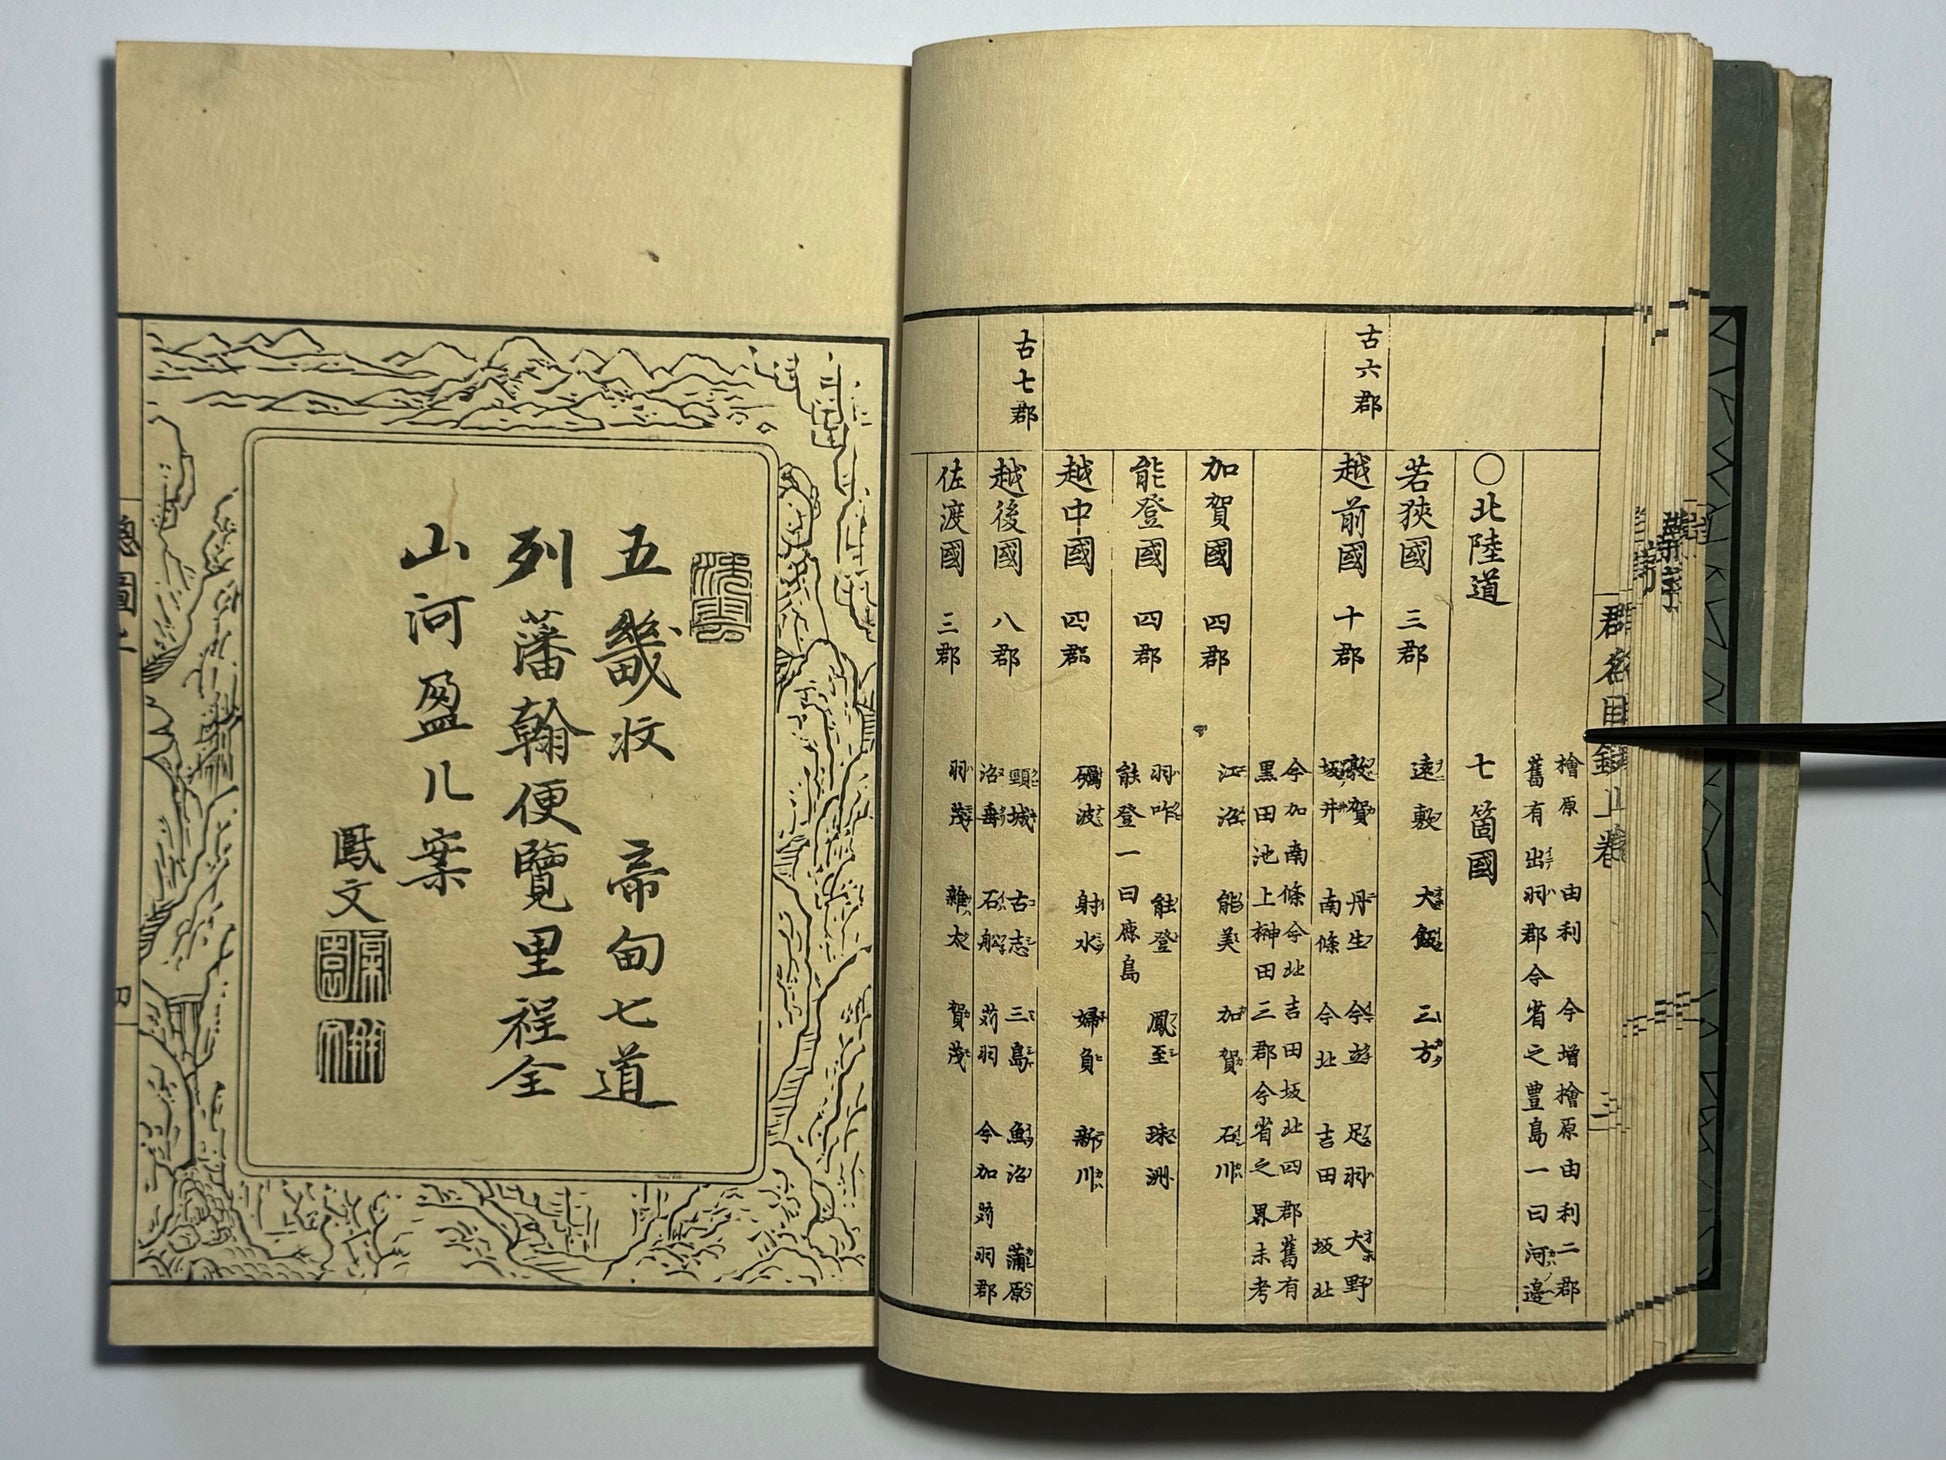 檜原 由利 今增檜原由利二郡
舊有出羽郡今省之豊島一曰河邉
〇北陸道 七箇國
若狹國 三郡 遠敷 大飯 三方
古六郡
越前國 十郡 敦賀 丹生 今立 足羽 大野
坂井 南條 今北 吉田 坂北
今加南條今北吉田坂北四郡舊有
黒田池上榊田三郡今省之界未考
加賀國 四郡 江沼 能美 加賀 石川
能登國 四郡 羽咋 能登 鳳至 珠洲
能登一曰鹿島
越中國 四郡 礪波 射水 婦負 新川
古七郡
越後國 八郡 頸城 古志 三島 魚沼 蒲原
沼垂 石船 苅羽 今加苅羽郡
佐渡國 三郡 羽茂 雜太 賀茂
群名目録上卷
三
五畿状 帝甸七道
列藩翰便覽里程全
山河盈几案
文
總圖